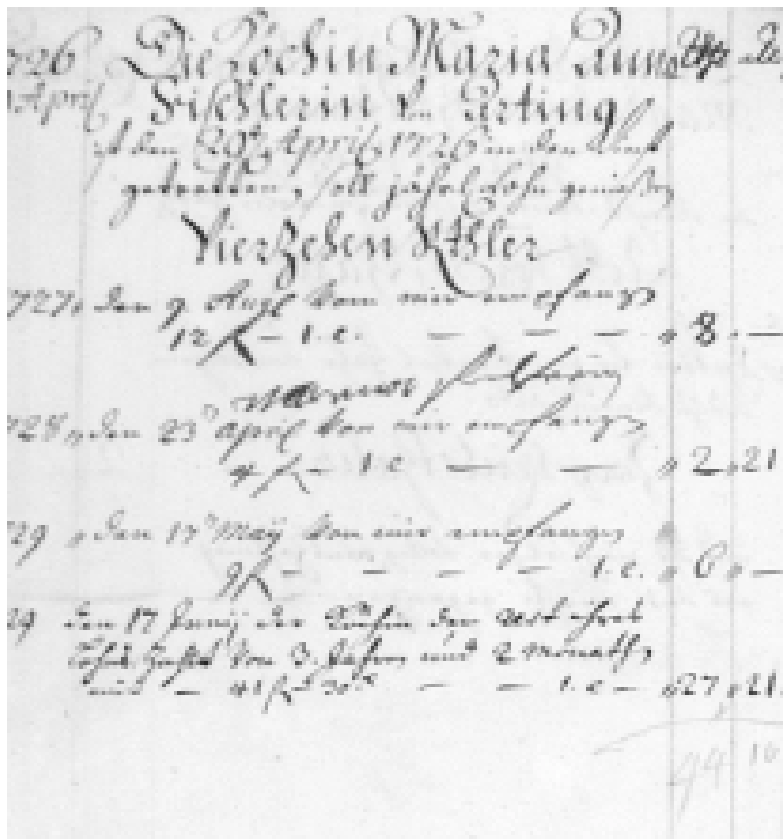 726 Die Köchin Maria Anna
April Fischlerin Von Arting
ist den 20t. April 1726 in den dienst
getretten, soll jährl. Lohn geniessen
Vierzehen
727, den 9. Aug. Von mir empfangen
12 f — i. e. — — — " 8 . —
728, den 23t April Von mir empfangen
4 f — i. e. — — " 2 " 21
29 " den 17t Maÿ Von mir empfangen
9 f — — — — i. e. " 6 " —
29 den 17 Junij der Köchin den rest ihres
Lohns Von 3. Jahren und 2 Monaths
mit — 41 f 30 x — — i. e — "27 "21
44 16